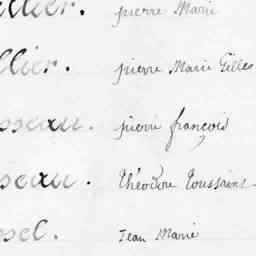 llier. pierre Marie
llier. pierre Marie Gilles
sseau. pierre françois
seau. théodore toussaint
ssel. Jean Marie